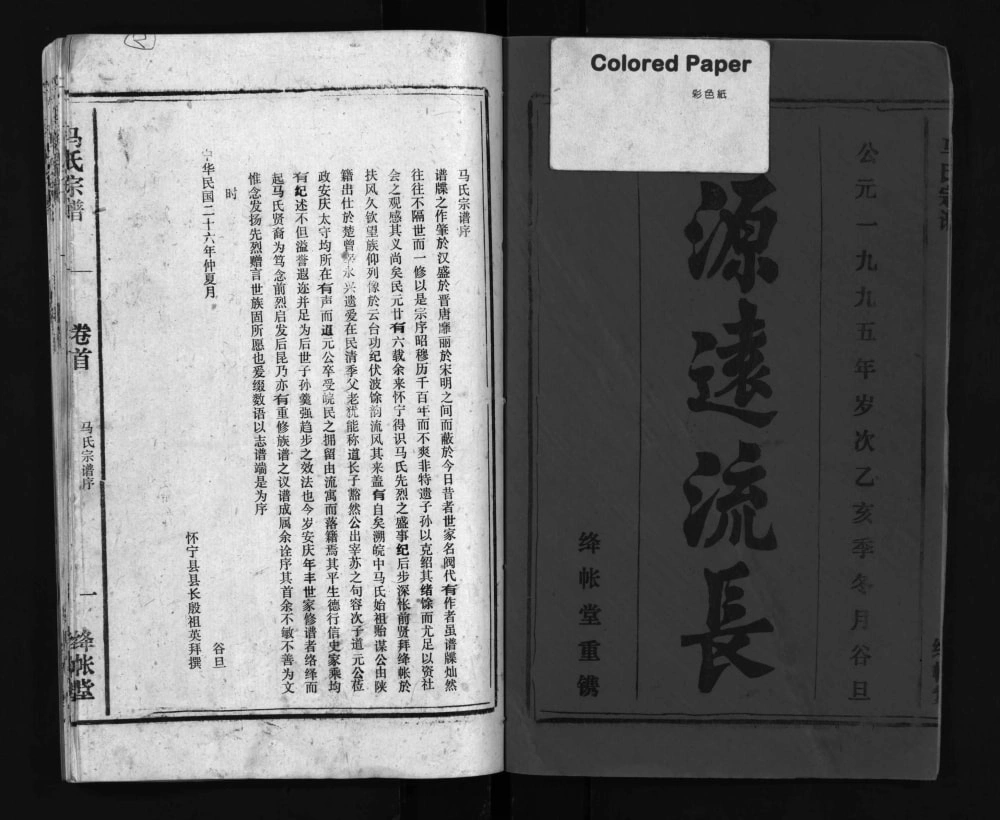 Colored Paper
彩色紙
公元一九九五年岁次乙亥季冬月谷旦
源遠流長
绛帐堂重镌
马氏宗谱序
谱牒之作肇於汉盛於晋唐靡丽於宋明之间而蔽於今日昔者世家名阀代有作者虽谱牒灿然
往往不隔世而一修以是宗序昭穆历千百年而不爽非特遗子孙以克绍其绪馀而尤足以资社
会之观感其义尚矣民元廿有六载余来怀宁得识马氏先烈之盛事纪后步深怅前贤拜绛帐於
扶风久钦望族仰列像於云台功纪伏波馀韵流风其来盖有自矣溯皖中马氏始祖贻谋公由陕
籍出仕於楚曾 永兴遗爱在民清季父老犹能称道长子豁然公出宰苏之句容次子道元公莅
政安庆太守均所在有声而道元公卒受皖民之拥留由流寓而落籍焉其平生德行信史家乘均
有纪述不但溢誉遐迩并足为后世子孙羹强趋步之效法也今岁安庆年丰世家修谱者络绎而
起马氏贤裔为笃念前烈启发后昆乃亦有重修族谱之议谱成属余诠序其首余不敏不善为文
惟念发扬先烈赠言世族固所愿也爰缀数语以志谱端是为序
时
中华民国二十六年仲夏月
谷旦
怀宁县县长殷祖英拜撰
马氏宗谱
卷首
马氏宗谱序
一
绛帐堂